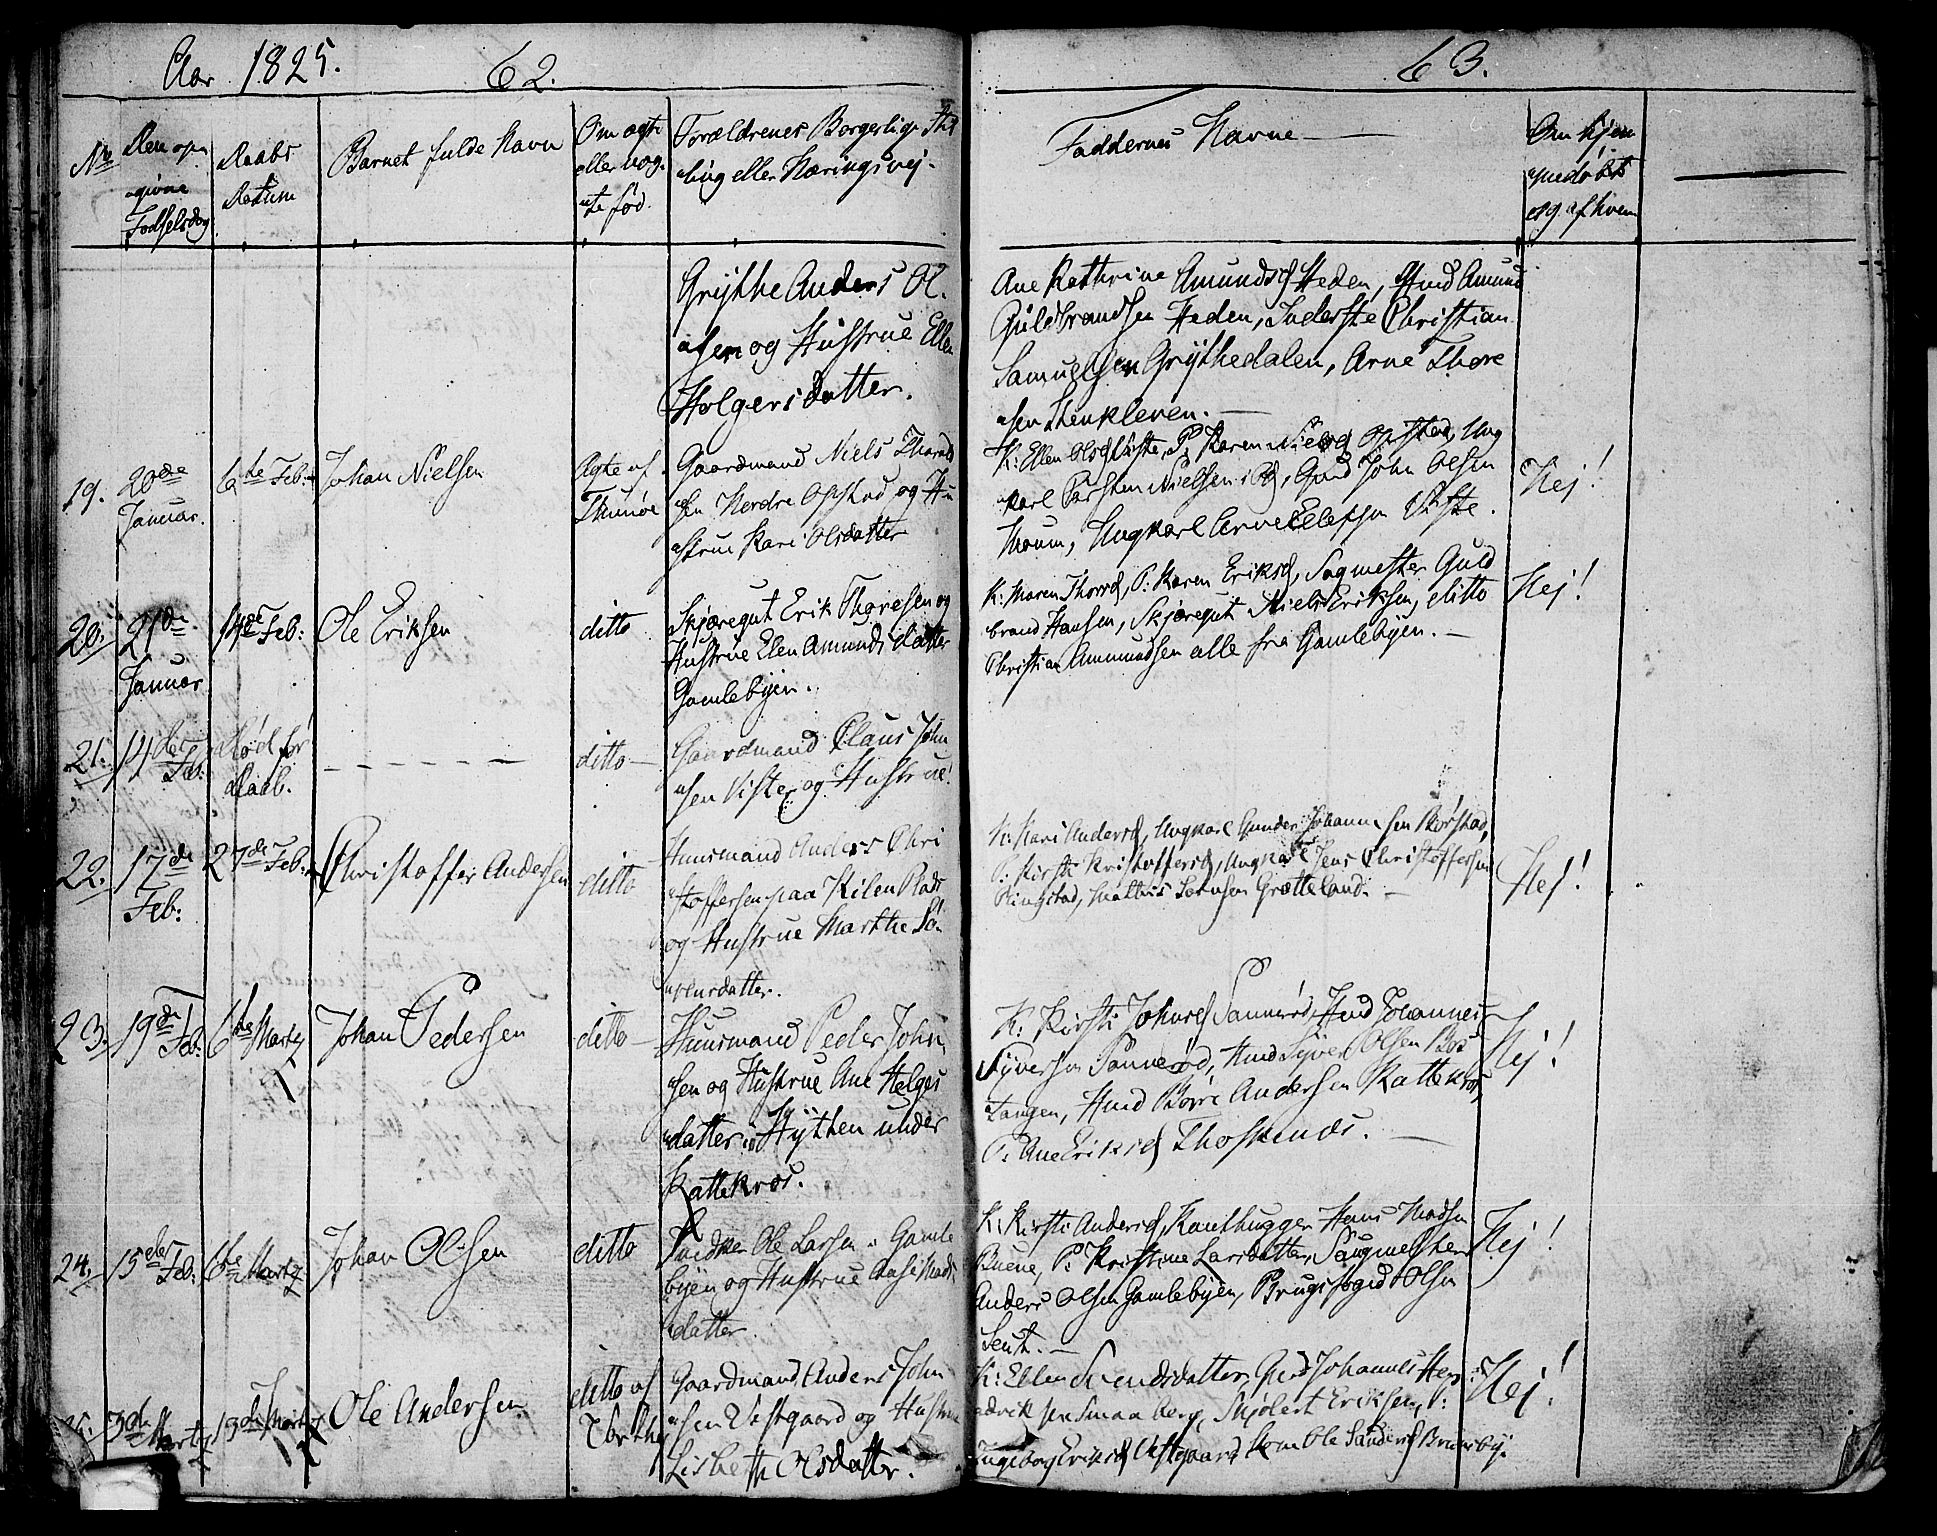 Aar 1825.
62.
No
Den op
givne
Fødselsdag
Daabs
Datum
Barnet fulde Navn
Om ægte
eller uæg
te fød.
Forældrenes Borgerlige Stil
ling eller Næringsvej.
Grythe Anders Ol
sen og Hustrue Ellen
Holgersdatter.
19.
20de
Januar.
6te Feb:
Johan Nielsen
Ægte af
Thunøe
Gaardmand Niels Thorals
sen Nordre Opstad og Hu
strue Kari Olsdatter
20.
21de
Januar
14de Feb:
Ole Eriksen
ditto
Skjæregut Erik Thoresen og
Hustrue Elen Amundsdatter
Gamlebyen.
21.
14de
Feb:
død før
Daab.
ditto
Gaardmand Claus John
sen Viste og Hustrue
22.
17de
Feb:
27de Feb:
Christoffer Andersen
ditto
Huusmand Anders Chri
stoffersen paa Kilen
og Hustrue Marthe Sø
rensdatter.
23.
19de
Feb:
6te Martz
Johan Pedersen
ditto
Huusmand Peder John
sen og Hustrue Ane Helges
datter i Hythen under
Kattekros.
24.
15de
Feb:
6te Martz
Johan Olsen
ditto
Snidker Ole Larsen i Gamle
byen og Hustrue Aase Mads
datter
25.
3de
Martz
13de Martz
Ole Andersen
ditto af
Gaardmand Anders John
sen Vestgaard og Hustrue
Lisbeth Olsdatter.
63.
Faddernes Navne
Om hjem
medøbt
og af hvem
Ane Kathrine Amundsd Heden, Huusd Amund
Guldbrandsen Heden, Inderste Christian
Samuelsen Grythedalen, Arne Thore
sen Stenkleven.
K: Ellen Olsd Viste, P: Karen Nielsd Opstad, Ung
karl Torsten Nielsen, Gmd John Olsen
Ungkarl Arne Ellefsen Viste.
Nej!
K: Maren Thorsd, P: Karen Eriksd, Sagmester Guld
brand Hansen, Skjæregut Niels Eriksen, ditto
Christian Ammundsen alle fra Gamlebyen.
Nej!
K: Kari Andersd, Ungkarl Gunder Johannesen Børstad,
P: Kirsti Kristoffersd, Ungkarl Jens Christoffersen
Ringstad, Mathis Sørensen Grætteland.
Nej!
K: Kirsti Johnsd Sannerød, Hmd Johannes
Syversen Sannerød, Hmd Syver Olsen Ros
Tangen, Hmd Børre Andersen Kattekros,
P: Ane Eriksd Thoskenæs.
Nej!
K: Kirsti Andersd, Kanthugger Hans Madsen
Buene, P: Kristine Larsdatter, Saugmester
Anders Olsen Gamlebyen, Brugsfogd Olsen
Seut.
Nej!
K: Ellen Svendsdatter, Gmd Johannes Hen
drik sen Smaaberg, Skjølert Eriksen, P:
Ingeborg Eriksd Vestgaard, Kone Ole Sandersd Brunsby.
Nej!